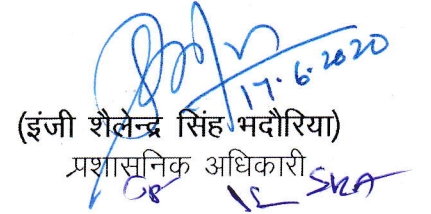 17.6.2020
(इंजी शैलेन्द्र सिंह भदौरिया)
प्रशासनिक अधिकारी